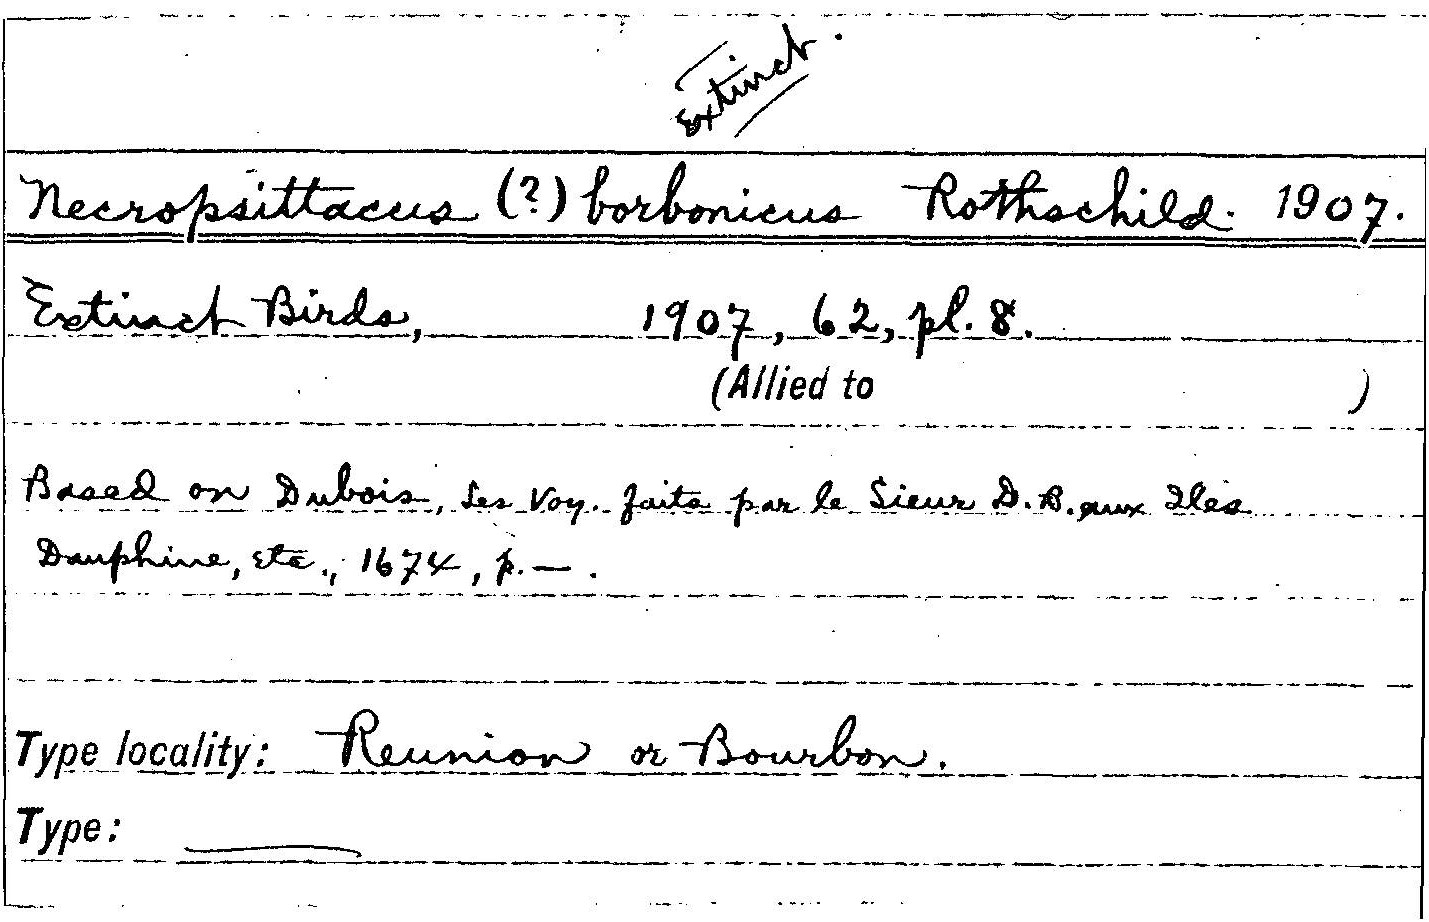 Extinct.
Necropsittacus (?) borbonicus Rothschild. 1907.
Extinct Birds, 1907, 62, pl. 8.
(Allied to )
Based on Dubois, Les Voy. faits par le Sieur D.B. aux Iles
Dauphine, etc., 1674, p. — .
Type locality: Reunion or Bourbon.
Type: ——